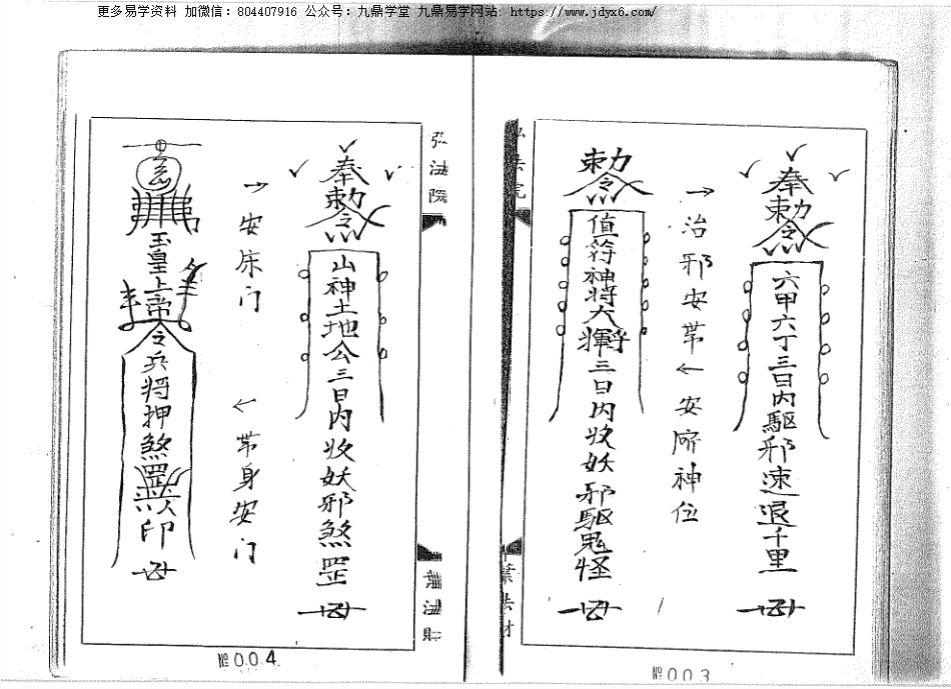 更多易学资料 加微信：804407916 公众号：九鼎学堂 九鼎易学网站：https://www.jdyx6.com/
奉勅令
六甲六丁三日内驱邪速退千里
→治邪安帯
←安房神位
勅令
值符神将大将军三日内收妖邪驱鬼怪
№003
弘法院
奉勅令
山神土地公三日内收妖邪煞罡
→安床门
←带身安门
玉皇上帝令兵将押煞罡
印
№004